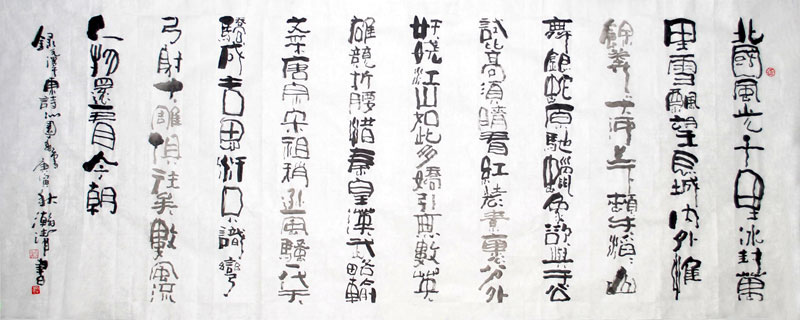 北國風光千里冰封萬
里雪飄望長城內外惟
餘莽上下頓失滔山
舞銀蛇原馳蠟象欲與天公
試比高須晴看紅裝素裹分外
妖嬈江山如此多嬌引無數英
雄競折腰惜秦皇漢武略輸
文采唐宗宋祖稍遜風騷一代天
驕成吉思汗只識彎
弓射大雕俱往矣數風流
人物還看今朝
錄毛澤東詩沁園春雪庚寅瀚清書